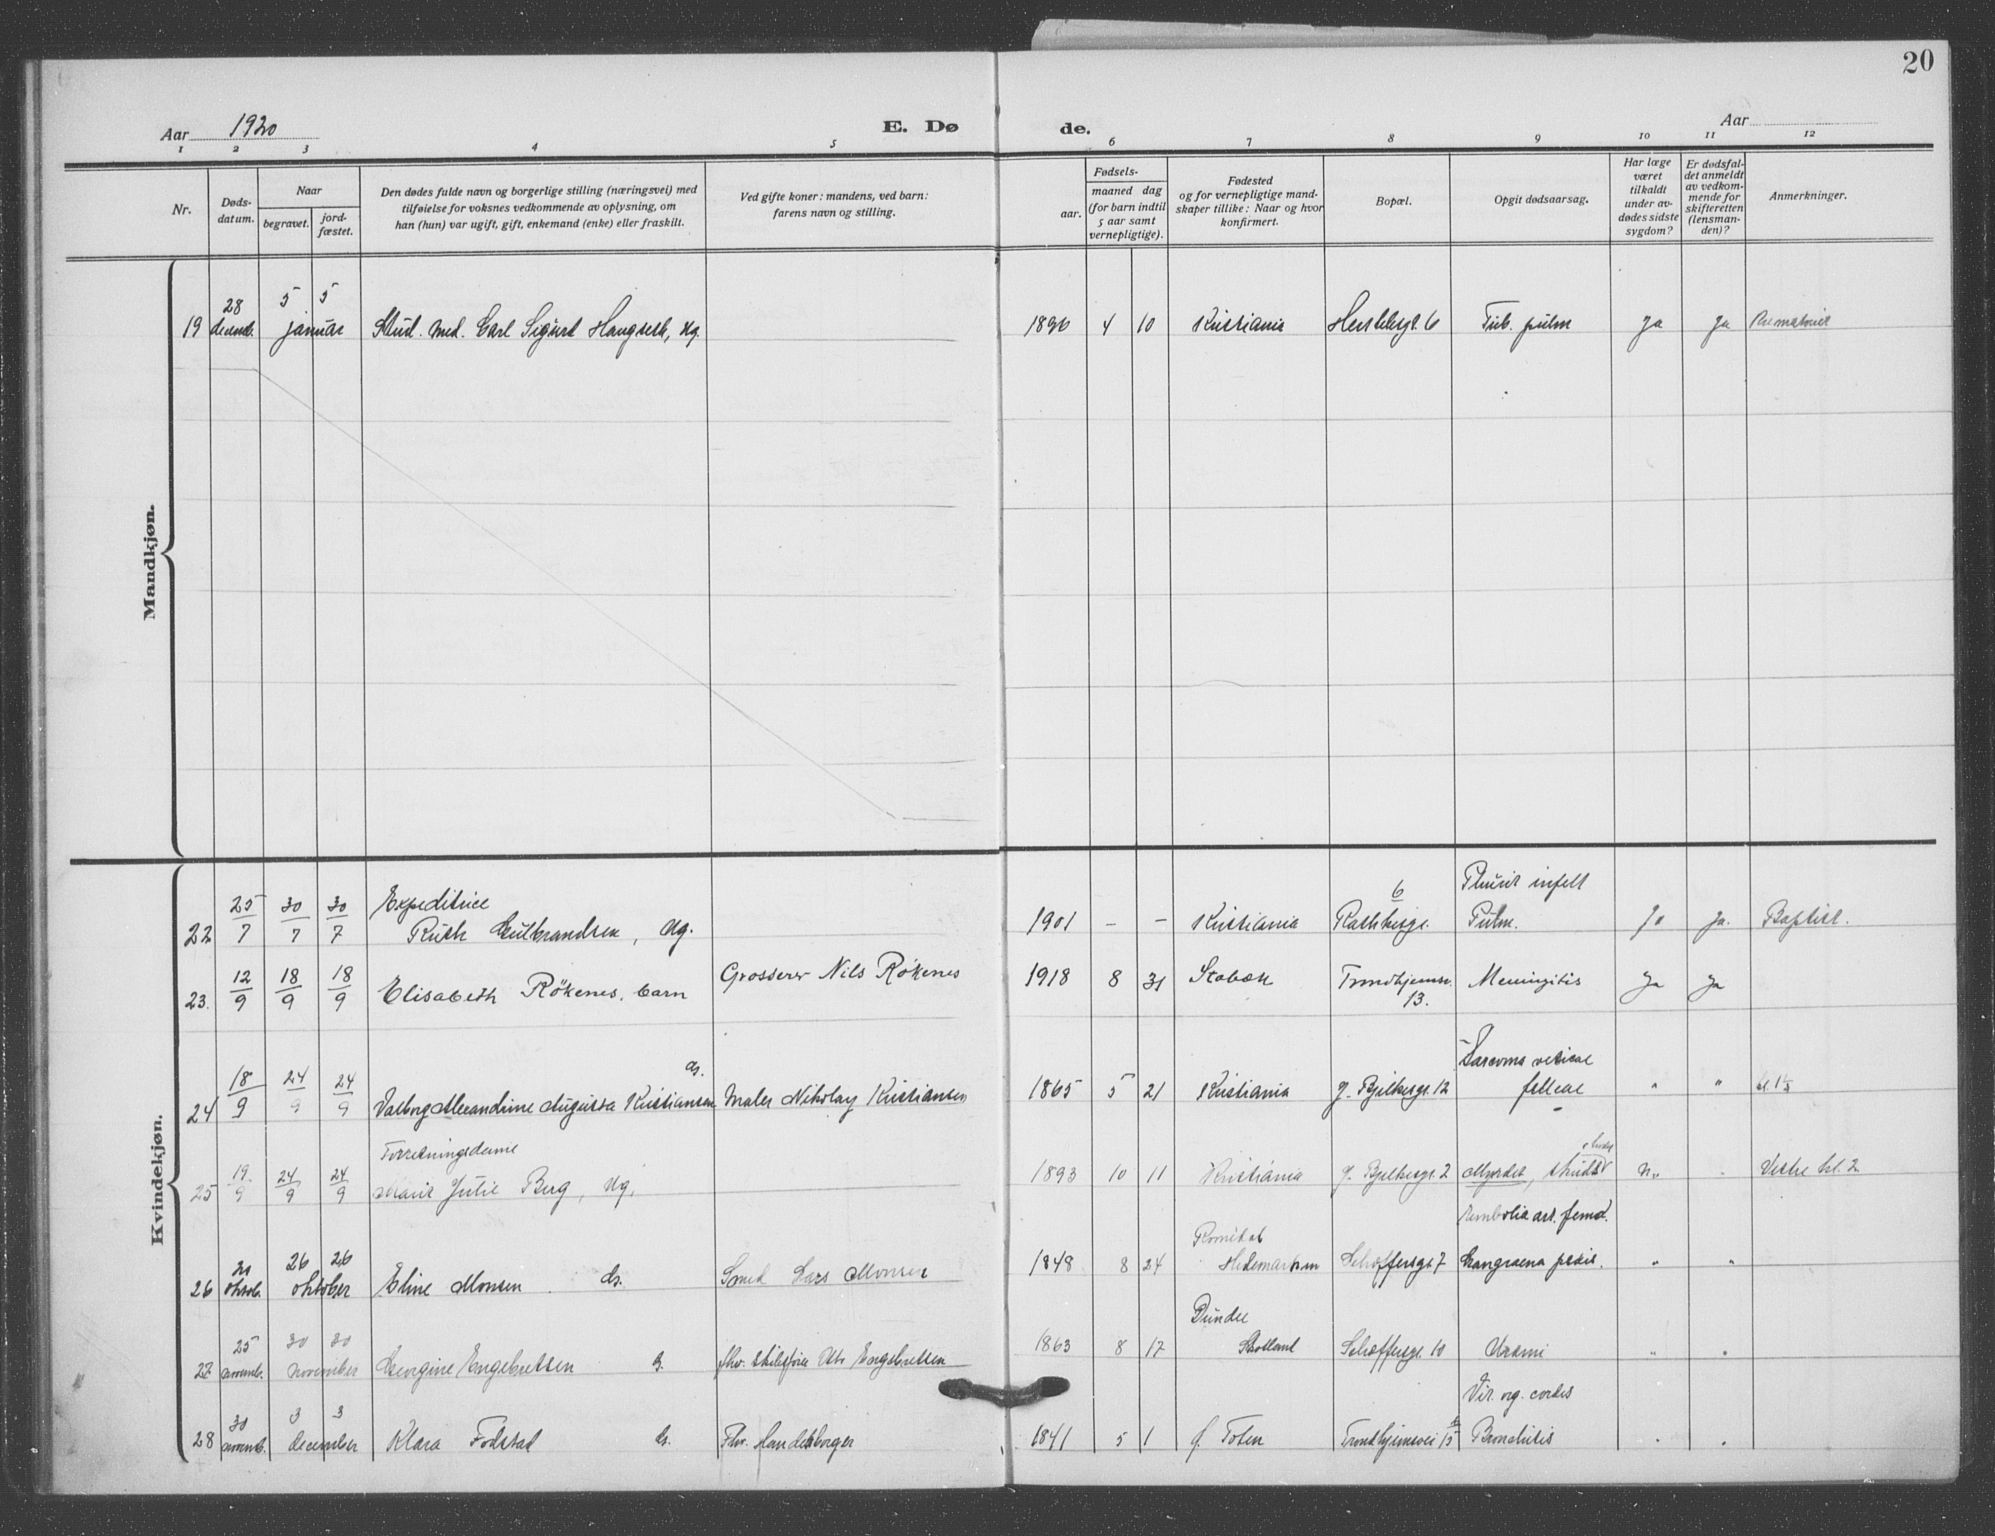 20
Aar 1920
E. Dø de.
Aar
1 2 3 4 5 6 7 8 9 10 11 12
Nr.
Døds-
datum.
Naar
begravet.
jord-
fæstet.
Den dødes fulde navn og borgerlige stilling (næringsvei) med
tilføielse for voksnes vedkommende av oplysning, om
han (hun) var ugift, gift, enkemand (enke) eller fraskilt.
Ved gifte koner: mandens, ved barn:
farens navn og stilling.
Fødsels-
aar.
maaned dag
(for barn indtil
5 aar samt
vernepligtige).
Fødested
og for vernepligtige mand-
skaper tillike: Naar og hvor
konfirmert.
Bopæl.
Opgit dødsaarsag.
Har læge
været
tilkaldt
under av-
dødes sidste
sygdom?
Er dødsfal-
det anmeldt
av vedkom-
mende for
skifteretten
(lensman-
den)?
Anmerkninger.
Mandkjøn.
28 5 5
19 decemb. januar Stud. med. Carl Sigurd Haugseth, ug. 1896 4 10 Kristiania 6 Tub. pulm Ja Ja
Kvindekjøn.
25 30 30 Expeditrice 6
22 7 7 7 Ruth Gulbrandsen, ug. 1901 - - Kristiania Rathkesgt. Pulm. Ja Ja. Baptist.
12 18 18 Grosserer Nils Røkenes
23. 9 9 9 Elisabeth Røkenes, barn 1918 8 31 Stabæk Trondhjemsv. 13. Meningitis Ja Ja
18 24 24 G. Sarcoma vesicae
24 9 9 9 Valborg Alexandrine Augusta Kristiansen Maler Nikolay Kristiansen 1865 5 21 Kristiania J. Bjelkesgt. 12 felleae " "
19 24 24 Forretningsdame
25 9 9 9 Marie Julie Berg, ug. 1893 10 11 Kristiania J. Bjelkesgt. 2 Myrdet, Vestre kl. 2
Embolia art. femor.
26 26 Romedal
26 oktob. oktober Eline Monsen G. Smed Lars Monsen 1848 8 24 Hedemarken Schæffersgt 7 Gangraena pedis. " "
25 30 30 Dundee
27 novemb. november Georgine Engebretsen G. Engebretsen 1863 8 17 Skotland Schæffersgt. 10 Uræmi " "
30 3 3 Vit. org. cordis
28 novemb. december Klara Fodstad G. Fhv. Handelsborger 1841 5 1 Ø. Toten Trondhjemsvei 15 Bronchitis " "